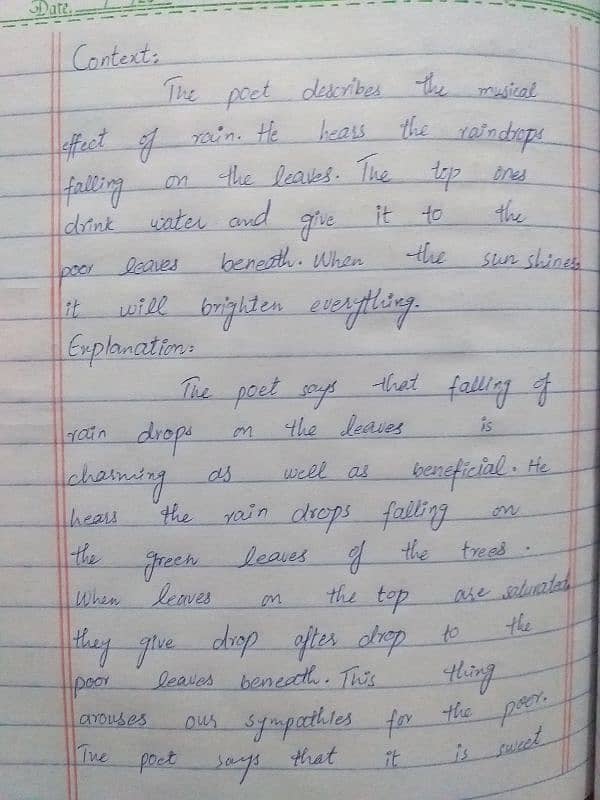 Date.
Context:
The poet describes the musical
effect of rain. He hears the raindrops
falling on the leaves. The top ones
drink water and give it to the
poor leaves beneath. When the sun shines
it will brighten everything.
Explanation:
The poet says that falling of
rain drops on the leaves is
charming as well as beneficial. He
hears the rain drops falling on
the green leaves of the trees.
When leaves on the top are saturated
they give drop after drop to the
poor leaves beneath. This thing
arouses our sympathies for the poor.
The poet says that it is sweet